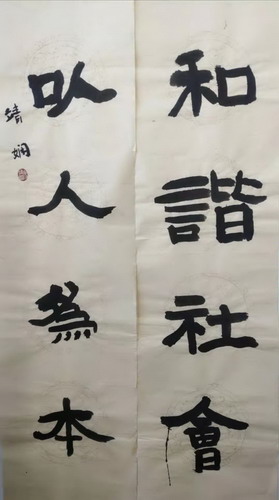 和諧社會
以人為本
靖嫻